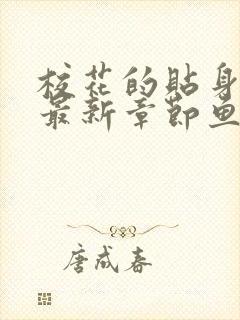 校花的贴身
最新章节鱼
唐成春